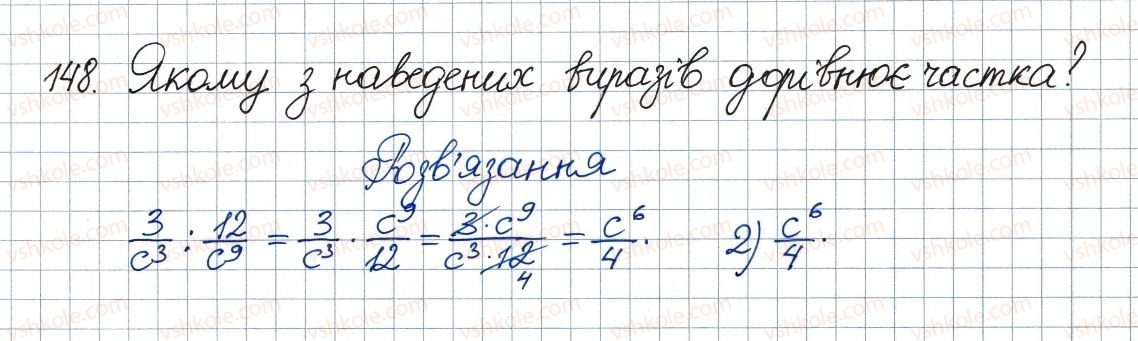 148. Якому з наведених виразів дорівнює частка?
Розв'язання
3/c³ : 12/c⁹ = 3/c³ · c⁹/12 = 3·c⁹/c³·12 4 = c⁶/4. 2) c⁶/4.